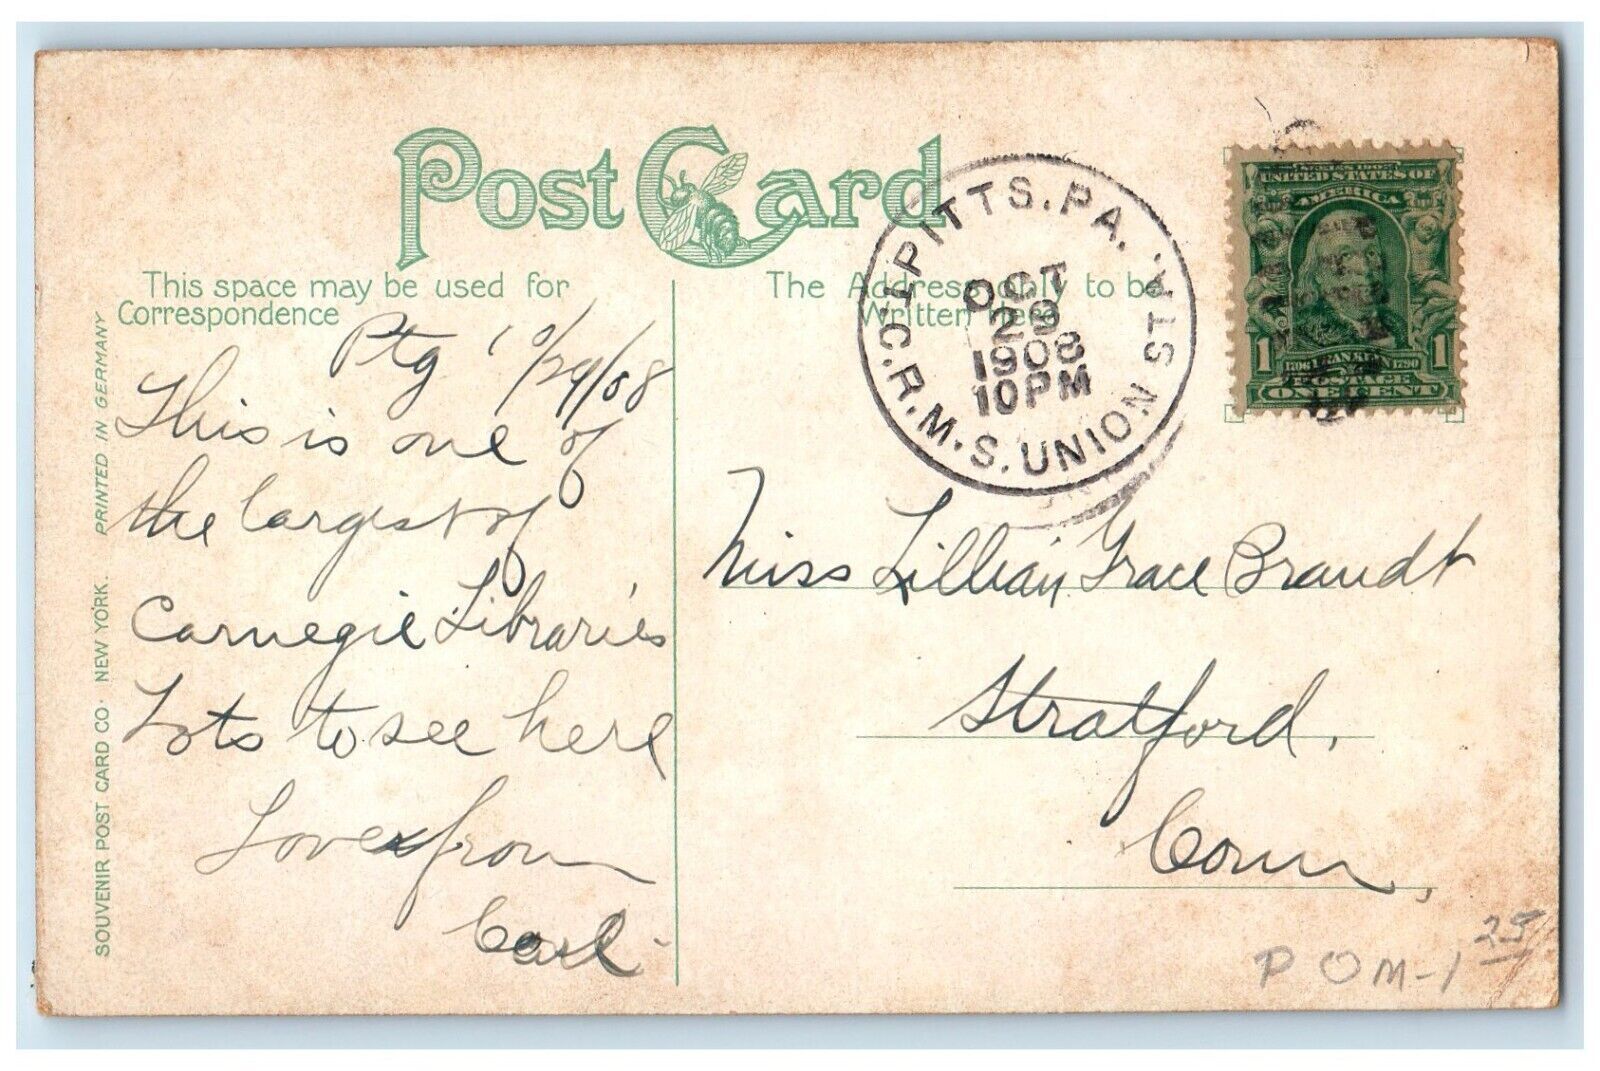 Post Card
This space may be used for
Correspondence
The Address only to be
Written Here
PITTS. PA. UNION STA.
T.C. R.M.S.
OCT
29
1908
10PM
UNITED STATES OF
AMERICA
1 1
FRANKLIN
POSTAGE
ONE CENT
Ptg 10/29/08
This is one of
the largest of
Carnegie Libraries
Lots to see here
Love from
Carl
Miss Lillian Grace Brandt
Stratford,
Conn,
P O M-1 25
SOUVENIR POST CARD CO. NEW YORK. PRINTED IN GERMANY